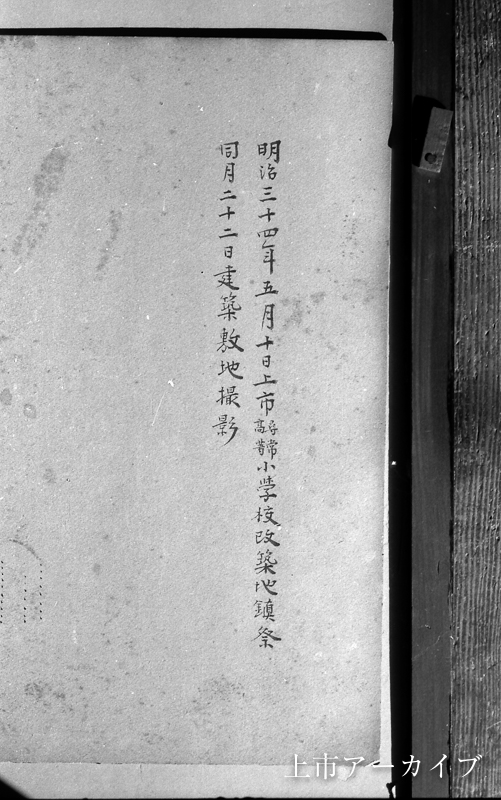 明治三十四年五月十日上市尋常高等小学校改築地鎮祭
同月二十二日建築敷地撮影
上市アーカイブ